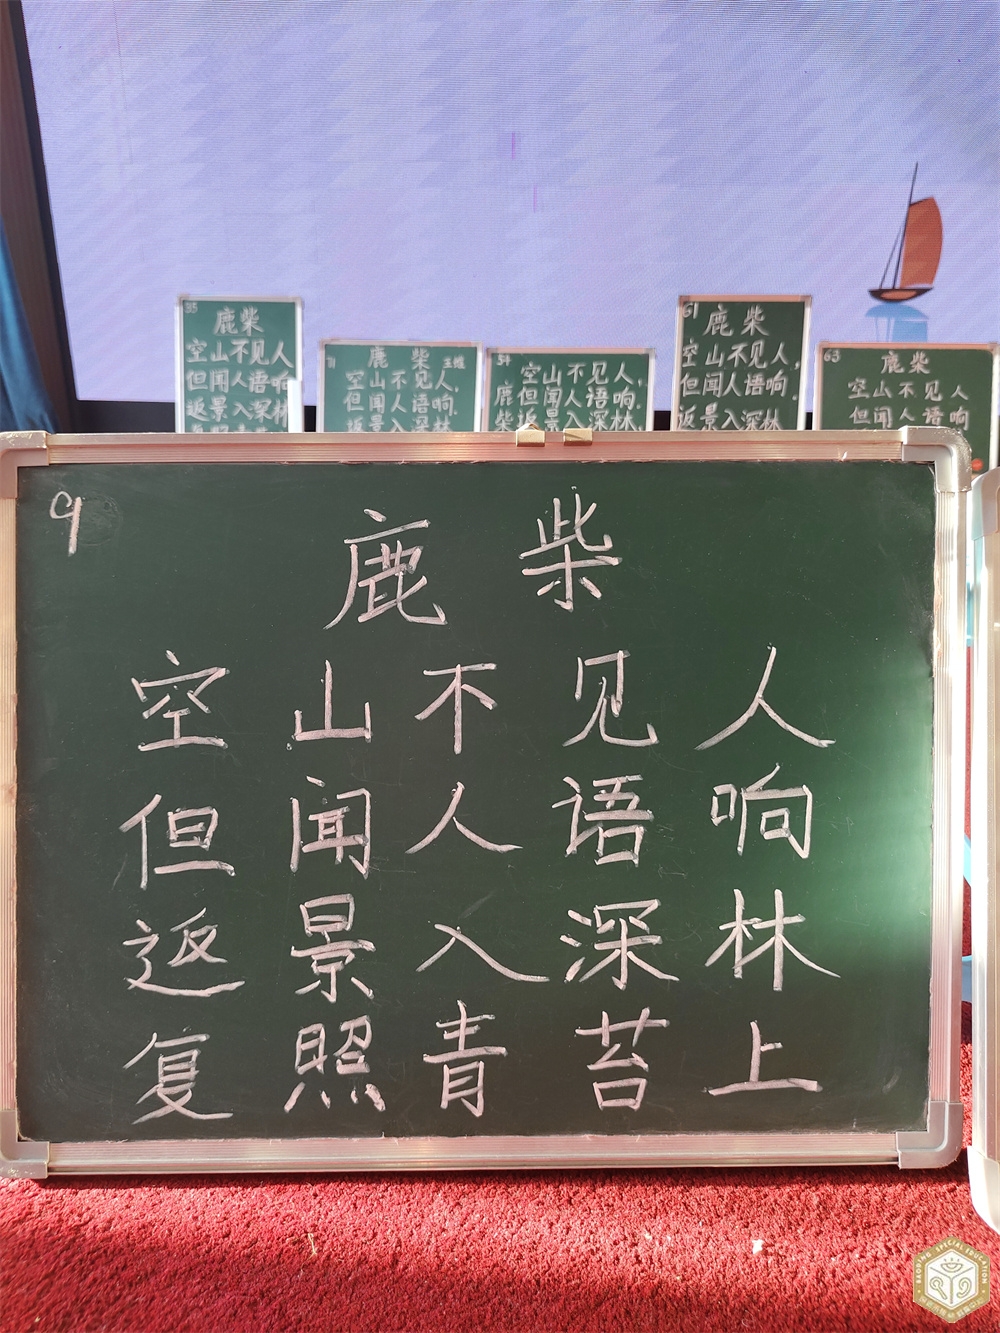 35
鹿柴
空山不见人
但闻人语响
返景入深林
71
鹿柴
王维
空山不见人,
但闻人语响.
返景入深林
54
鹿柴
空山不见人,
但闻人语响.
返景入深林,
61
鹿柴
空山不见人,
但闻人语响.
返景入深林
63
鹿柴
空山不见人
但闻人语响
9
鹿柴
空山不见人
但闻人语响
返景入深林
复照青苔上
BAODING SPECIAL EDUCATION